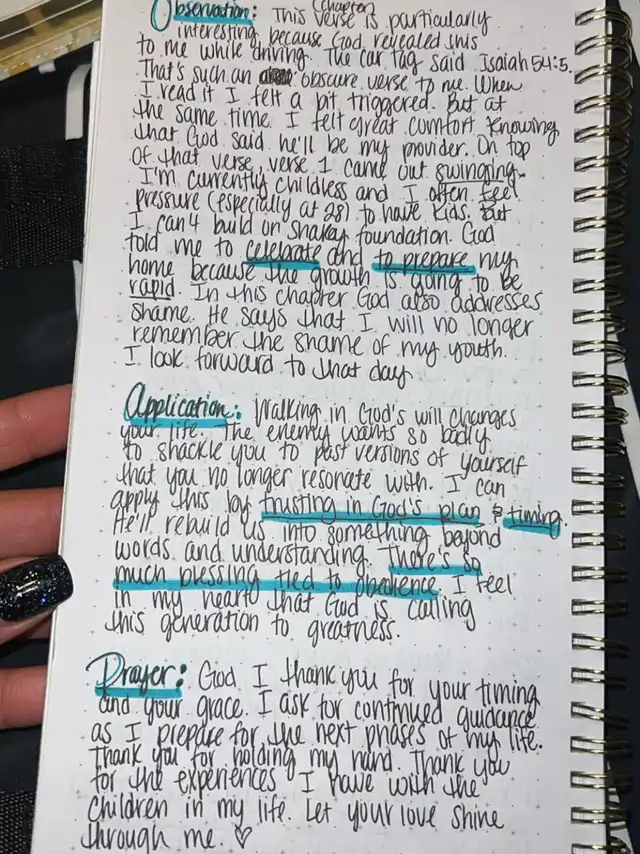 Chapter
Observation: This verse is particularly
interesting because God revealed this
to me while driving. The car tag said Isaiah 54:5.
That's such an obscure verse to me. When
I read it I felt a bit triggered. But at
the same time I felt great comfort knowing
that God said he'll be my provider. On top
of that verse, verse 1 came out swinging.
I'm currently childless and I often feel
pressure (especially at 28) to have kids. But
I can't build on shakey foundation. God
told me to celebrate and to prepare my
home because the growth is going to be
rapid. In this chapter God also addresses
shame. He says that I will no longer
remember the shame of my youth.
I look forward to that day
Application: Walking in God's will changes
your life. The enemy wants so badly
to shackle you to past versions of yourself
that you no longer resonate with. I can
apply this by trusting in God's plan & timing.
He'll rebuild us into something beyond
words and understanding. There's so
much blessing tied to obedience. I feel
in my heart that God is calling
this generation to greatness.
Prayer: God I thank you for your timing
and your grace. I ask for continued guidance
as I prepare for the next phases of my life.
Thank you for holding my hand. Thank you
for the experiences I have with the
children in my life. Let your love shine
through me. ♡